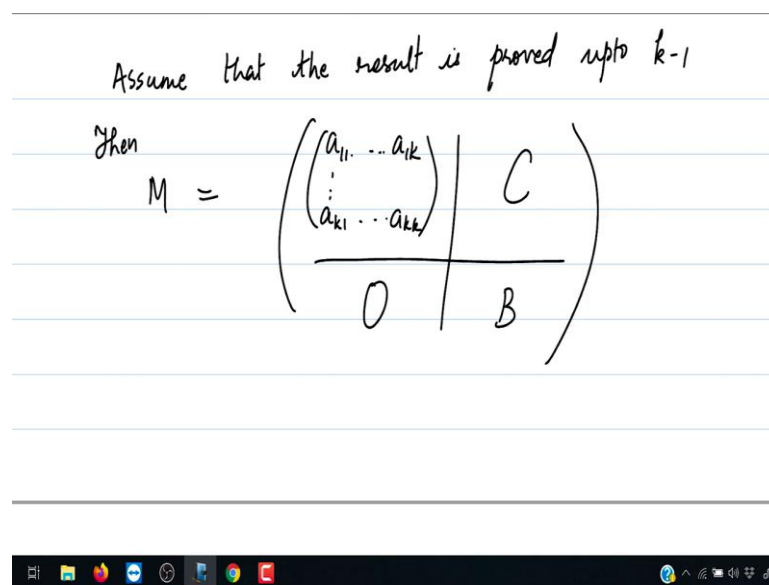 Assume that the result is proved upto k-1
Then
M = ( ( a₁₁ ... a₁ₖ | C
⋮
aₖ₁ ... aₖₖ )
O | B )